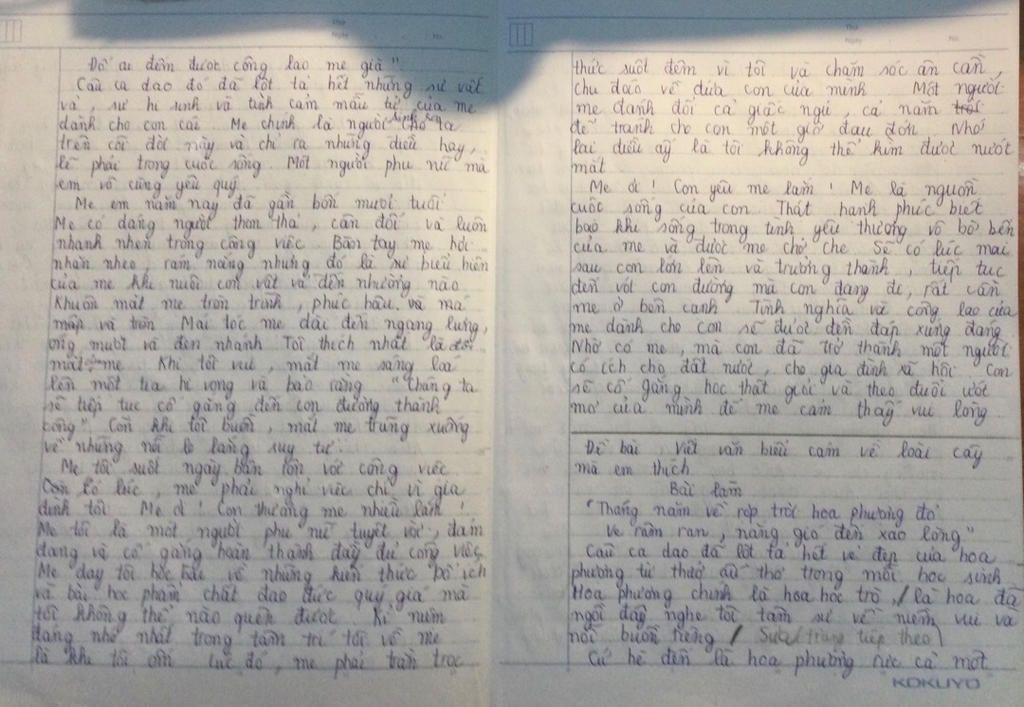 Đố ai đếm được công lao mẹ già"
Câu ca dao đó đã lột tả hết những sự vất
vả, sự hi sinh và tình cảm mẫu tử của mẹ
dành cho con cái. Mẹ chính là người sinh ra cho ta
trên cõi đời này và chỉ ra những điều hay,
lẽ phải trong cuộc sống. Một người phụ nữ mà
em vô cùng yêu quý.
Mẹ em năm nay đã gần bốn mươi tuổi
Mẹ có dáng người thon thả, cân đối và luôn
nhanh nhẹn trong công việc. Bàn tay mẹ hơi
nhăn nheo, rám nắng nhưng đó là sự biểu hiện
của mẹ khi nuôi con vất vả đến nhường nào
Khuôn mặt mẹ tròn trĩnh, phúc hậu và má
mập và tròn. Mái tóc mẹ dài đến ngang lưng,
óng mượt và đen nhánh. Tôi thích nhất là đôi
mắt mẹ. Khi tôi vui, mắt mẹ sáng loá
lên một tia hi vọng và bảo rằng "Chúng ta
sẽ tiếp tục cố gắng đến con đường thành
công". Còn khi tôi buồn, mắt mẹ trũng xuống
về những nỗi lo lắng suy tư.
Mẹ tôi suốt ngày bận rộn với công việc.
Có lúc, mẹ phải nghỉ việc chỉ vì gia
đình tôi. Mẹ ơi! Con thương mẹ nhiều lắm!
Mẹ tôi là một người phụ nữ tuyệt vời, đảm
đang và cố gắng hoàn thành đầy đủ công việc.
Mẹ dạy tôi học bài về những kiến thức bổ ích
và bài học phẩm chất đạo đức quý giá mà
tôi không thể nào quên được. Kỉ niệm
đáng nhớ nhất trong tâm trí tôi về mẹ
là khi tôi ốm. Lúc đó, mẹ phải trằn trọc
thức suốt đêm vì tôi và chăm sóc ân cần,
chu đáo về đứa con của mình. Một người
mẹ đánh đổi cả giấc ngủ, cả năm trời
để tránh cho con một giờ đau đớn. Nhớ
lại điều ấy là tôi không thể kìm được nước
mắt.
Mẹ ơi! Con yêu mẹ lắm! Mẹ là nguồn
cuộc sống của con. Thật hạnh phúc biết
bao khi sống trong tình yêu thương vô bờ bến
của mẹ và được mẹ chở che. Sẽ có lúc mai
sau con lớn lên và trưởng thành, tiếp tục
đến với con đường mà con đang đi, rất cần
mẹ ở bên cạnh. Tình nghĩa và công lao của
mẹ dành cho con sẽ được đền đáp xứng đáng
Nhờ có mẹ, mà con đã trở thành một người
có ích cho đất nước, cho gia đình xã hội. Con
sẽ cố gắng học thật giỏi và theo đuổi ước
mơ của mình để mẹ cảm thấy vui lòng.
Đề bài: Viết văn biểu cảm về loài cây
mà em thích
Bài làm
"Tháng năm về rợp trời hoa phượng đỏ
Ve râm ran, nắng gió đến xao lòng"
Câu ca dao đã lột tả hết vẻ đẹp của hoa
phượng từ thưở ấu thơ trong mỗi học sinh
Hoa phượng chính là hoa học trò, / là hoa đã
ngồi đây nghe tôi tâm sự về niềm vui và
nỗi buồn riêng / Sửa (trang tiếp theo)
Cứ hè đến là hoa phượng rực cả một
KOKUYO